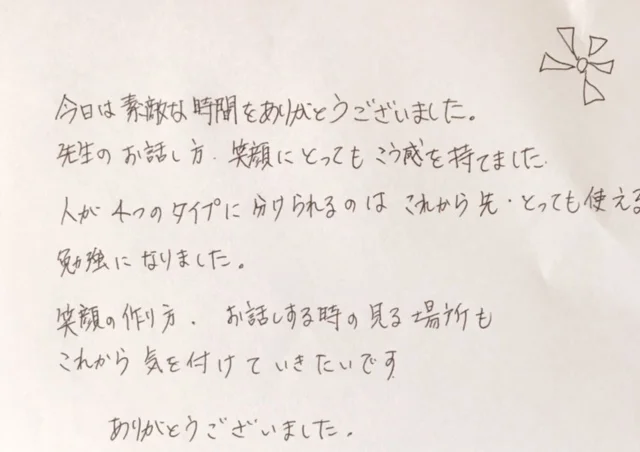 今日は素敵な時間をありがとうございました。
先生のお話し方．笑顔にとってもこう感を持てました．
人が4つのタイプに分けられるのはこれから先・とっても使える
勉強になりました。
笑顔の作り方．お話しする時の見る場所も
これから気を付けていきたいです
ありがとうございました．